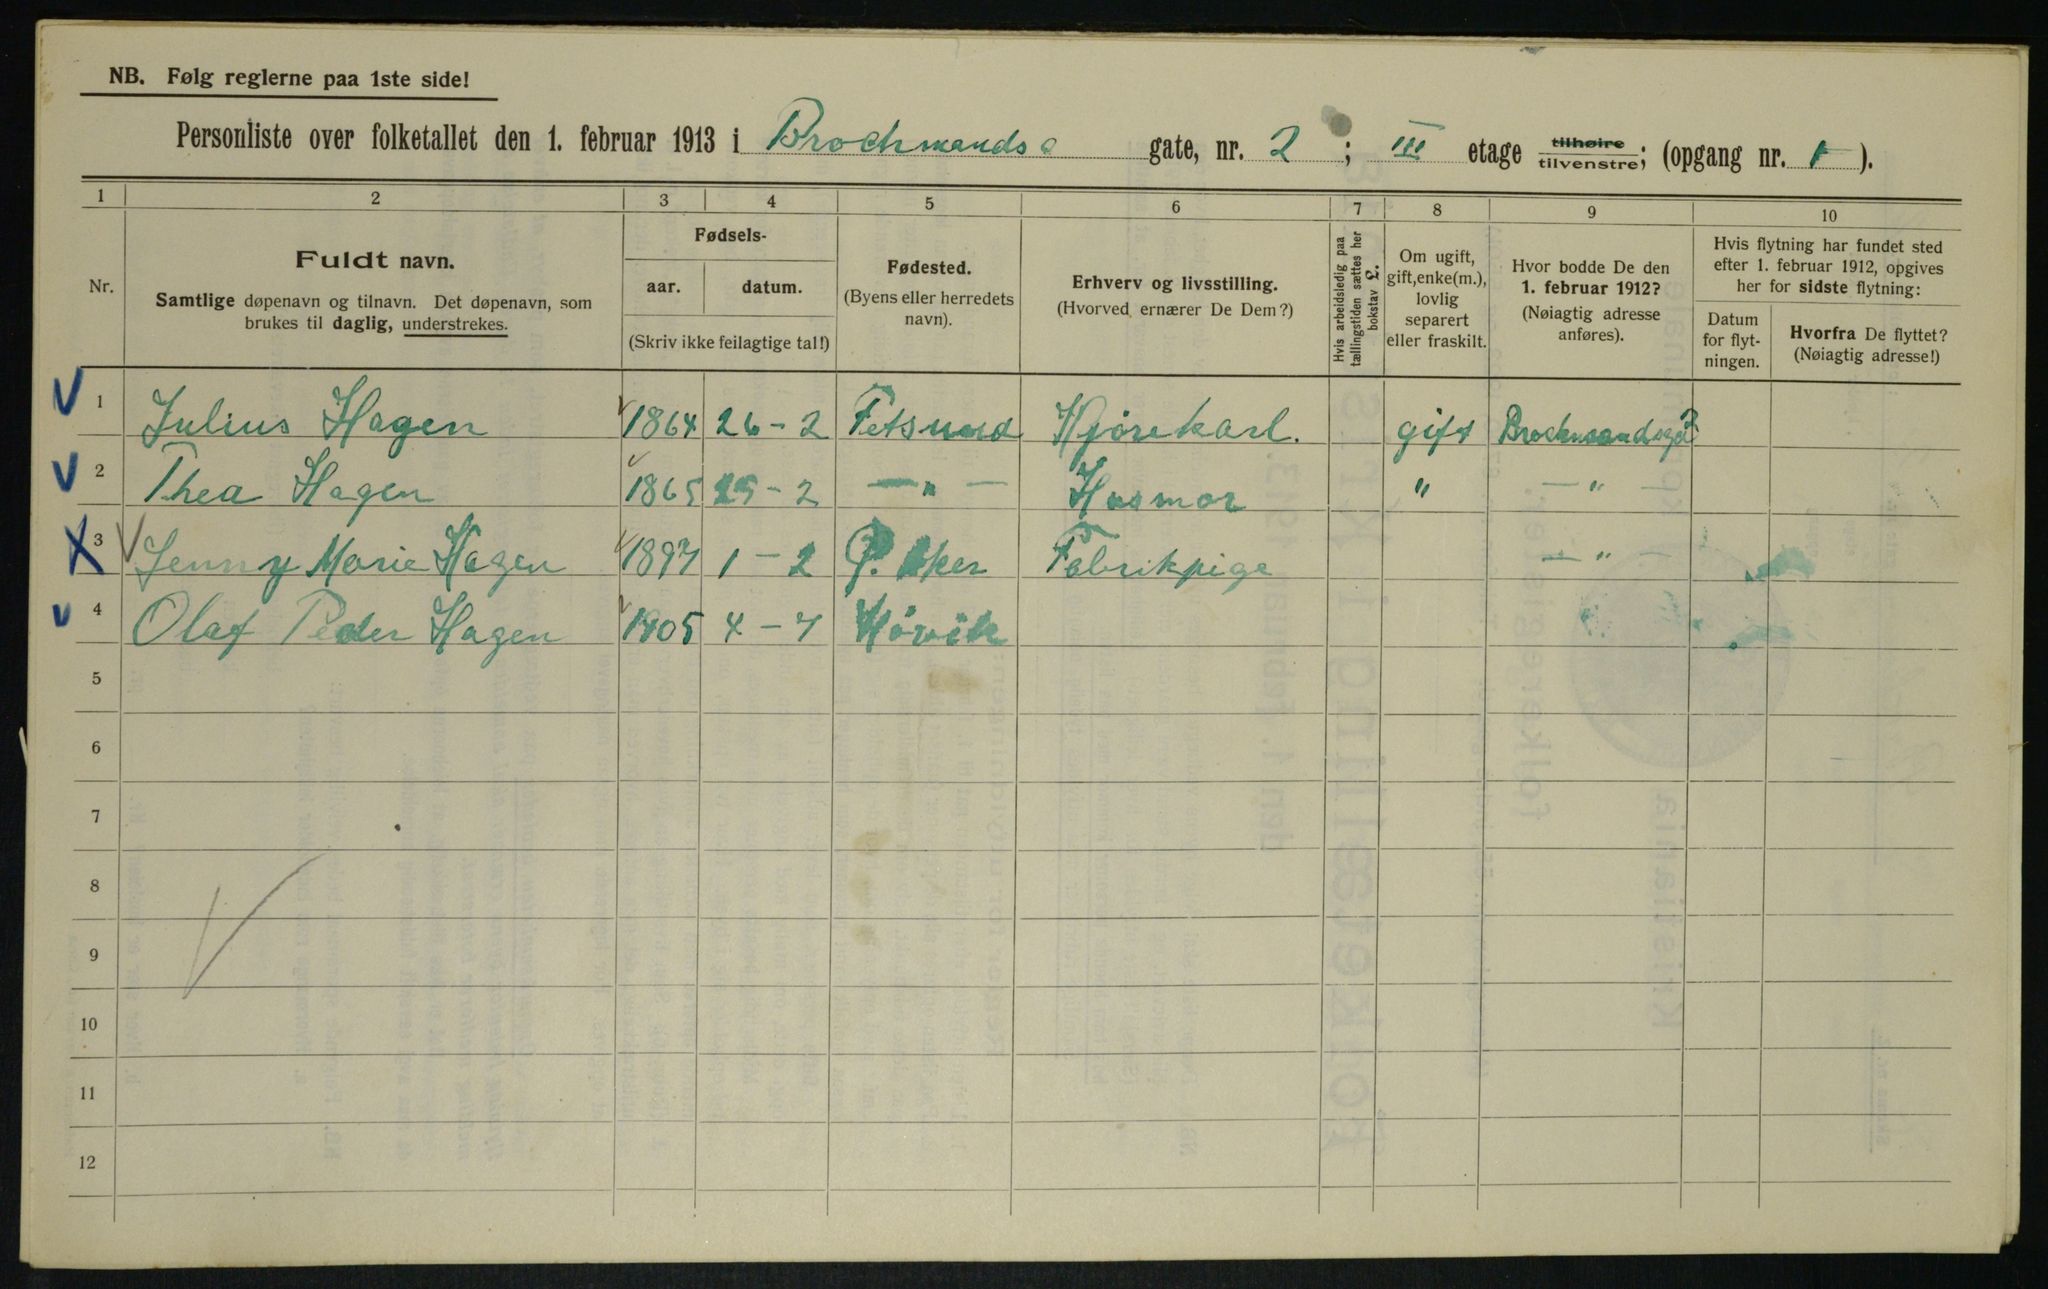 NB. Følg reglerne paa 1ste side!
Personliste over folketallet den 1. februar 1913 i Brochmands gate, nr. 2 ; III etage tilhøire tilvenstre; (opgang nr. 1 ).
1 2 3 4 5 6 7 8 9 10
Nr.
Fuldt navn.
Samtlige døpenavn og tilnavn. Det døpenavn, som
brukes til daglig, understrekes.
Fødsels-
aar. datum.
(Skriv ikke feilagtige tal!)
Fødested.
(Byens eller herredets
navn).
Erhverv og livsstilling.
(Hvorved ernærer De Dem?)
Hvis arbeidsledig paa
tællingstiden sættes her
bokstav L.
Om ugift,
gift, enke(m.),
lovlig
separert
eller fraskilt.
Hvor bodde De den
1. februar 1912?
(Nøiagtig adresse
anføres).
Hvis flytning har fundet sted
efter 1. februar 1912, opgives
her for sidste flytning:
Datum
for flyt-
ningen.
Hvorfra De flyttet?
(Nøiagtig adresse!)
1 Julius Hagen 1864 26-2 Fetsund Kjørekarl. gift Brochmandsge 2
2 Thea Hagen 1865 25-2 —„— Husmor " —"—
3 Jenny Marie Hagen 1897 1-2 Ø. Aker Fabrikpige —"—
4 Olaf Peder Hagen 1905 4-7 Høvik
5
6
7
8
9
10
11
12